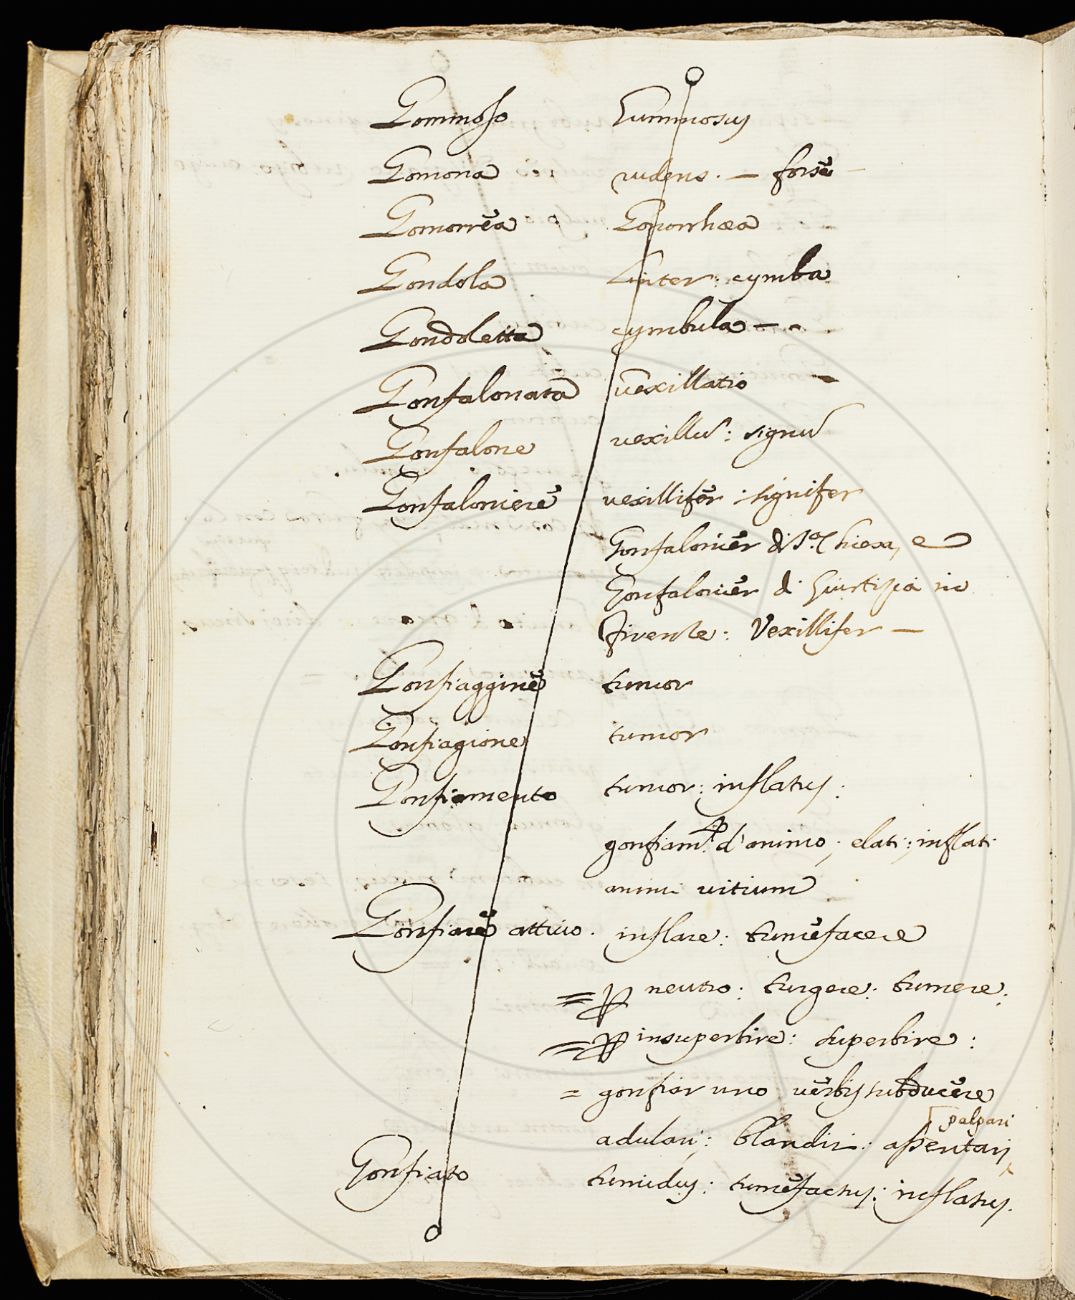 Gommoso Gummosus
Gomona rudens. — forsē
Gomorrēa Gonorrhœa
Gondola Linter: cymba
Gondoletta cymbula —
Gonfalonata vexillatio
Gonfalone vexillū: signū
Gonfaloniere vexillifer: signifer
Gonfalonier di S.ª Chiexa, e
Gonfalonier di Giustizia in
Firenze: Vexillifer —
Gonfiaggine tumor
Gonfiagione tumor
Gonfiamento tumor: inflatus:
gonfiam.º d'animo; elati: inflati
animi vitium
Gonfiare attivo. inflare: tumefacere
= neutro: turgere: tumere:
= insuperbire: superbire:
= gonfiar uno verbis subducere
palpari
adulari: blandiri: assentari
Gonfiato tumidus: tumefactus: inflatus.